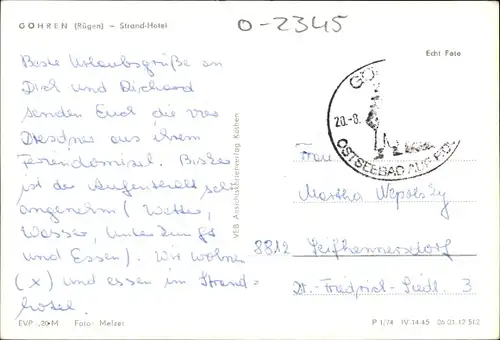 GÖHREN (Rügen) – Strand-Hotel
0-2345
Echt Foto
Beste Urlaubsgrüße an
Dich und Richard
senden Euch die vier
Dresdner aus ihrem
Feriendomizil. Bisher
ist der Aufenthalt sehr
angenehm (Wetter,
Wasser, Unterkunft
und Essen). Wir wohnen
(x) und essen im Strand=
hotel.
VEB Ansichtskartenverlag Köthen
20.-8.
OSTSEEBAD AUF
Frau
Martha
8812 Seifhennersdorf
Dr.-Friedrich-Siedl. 3
EVP -,20 M Foto: Melzer
P 1/74 IV-14-45 06 01 12 512